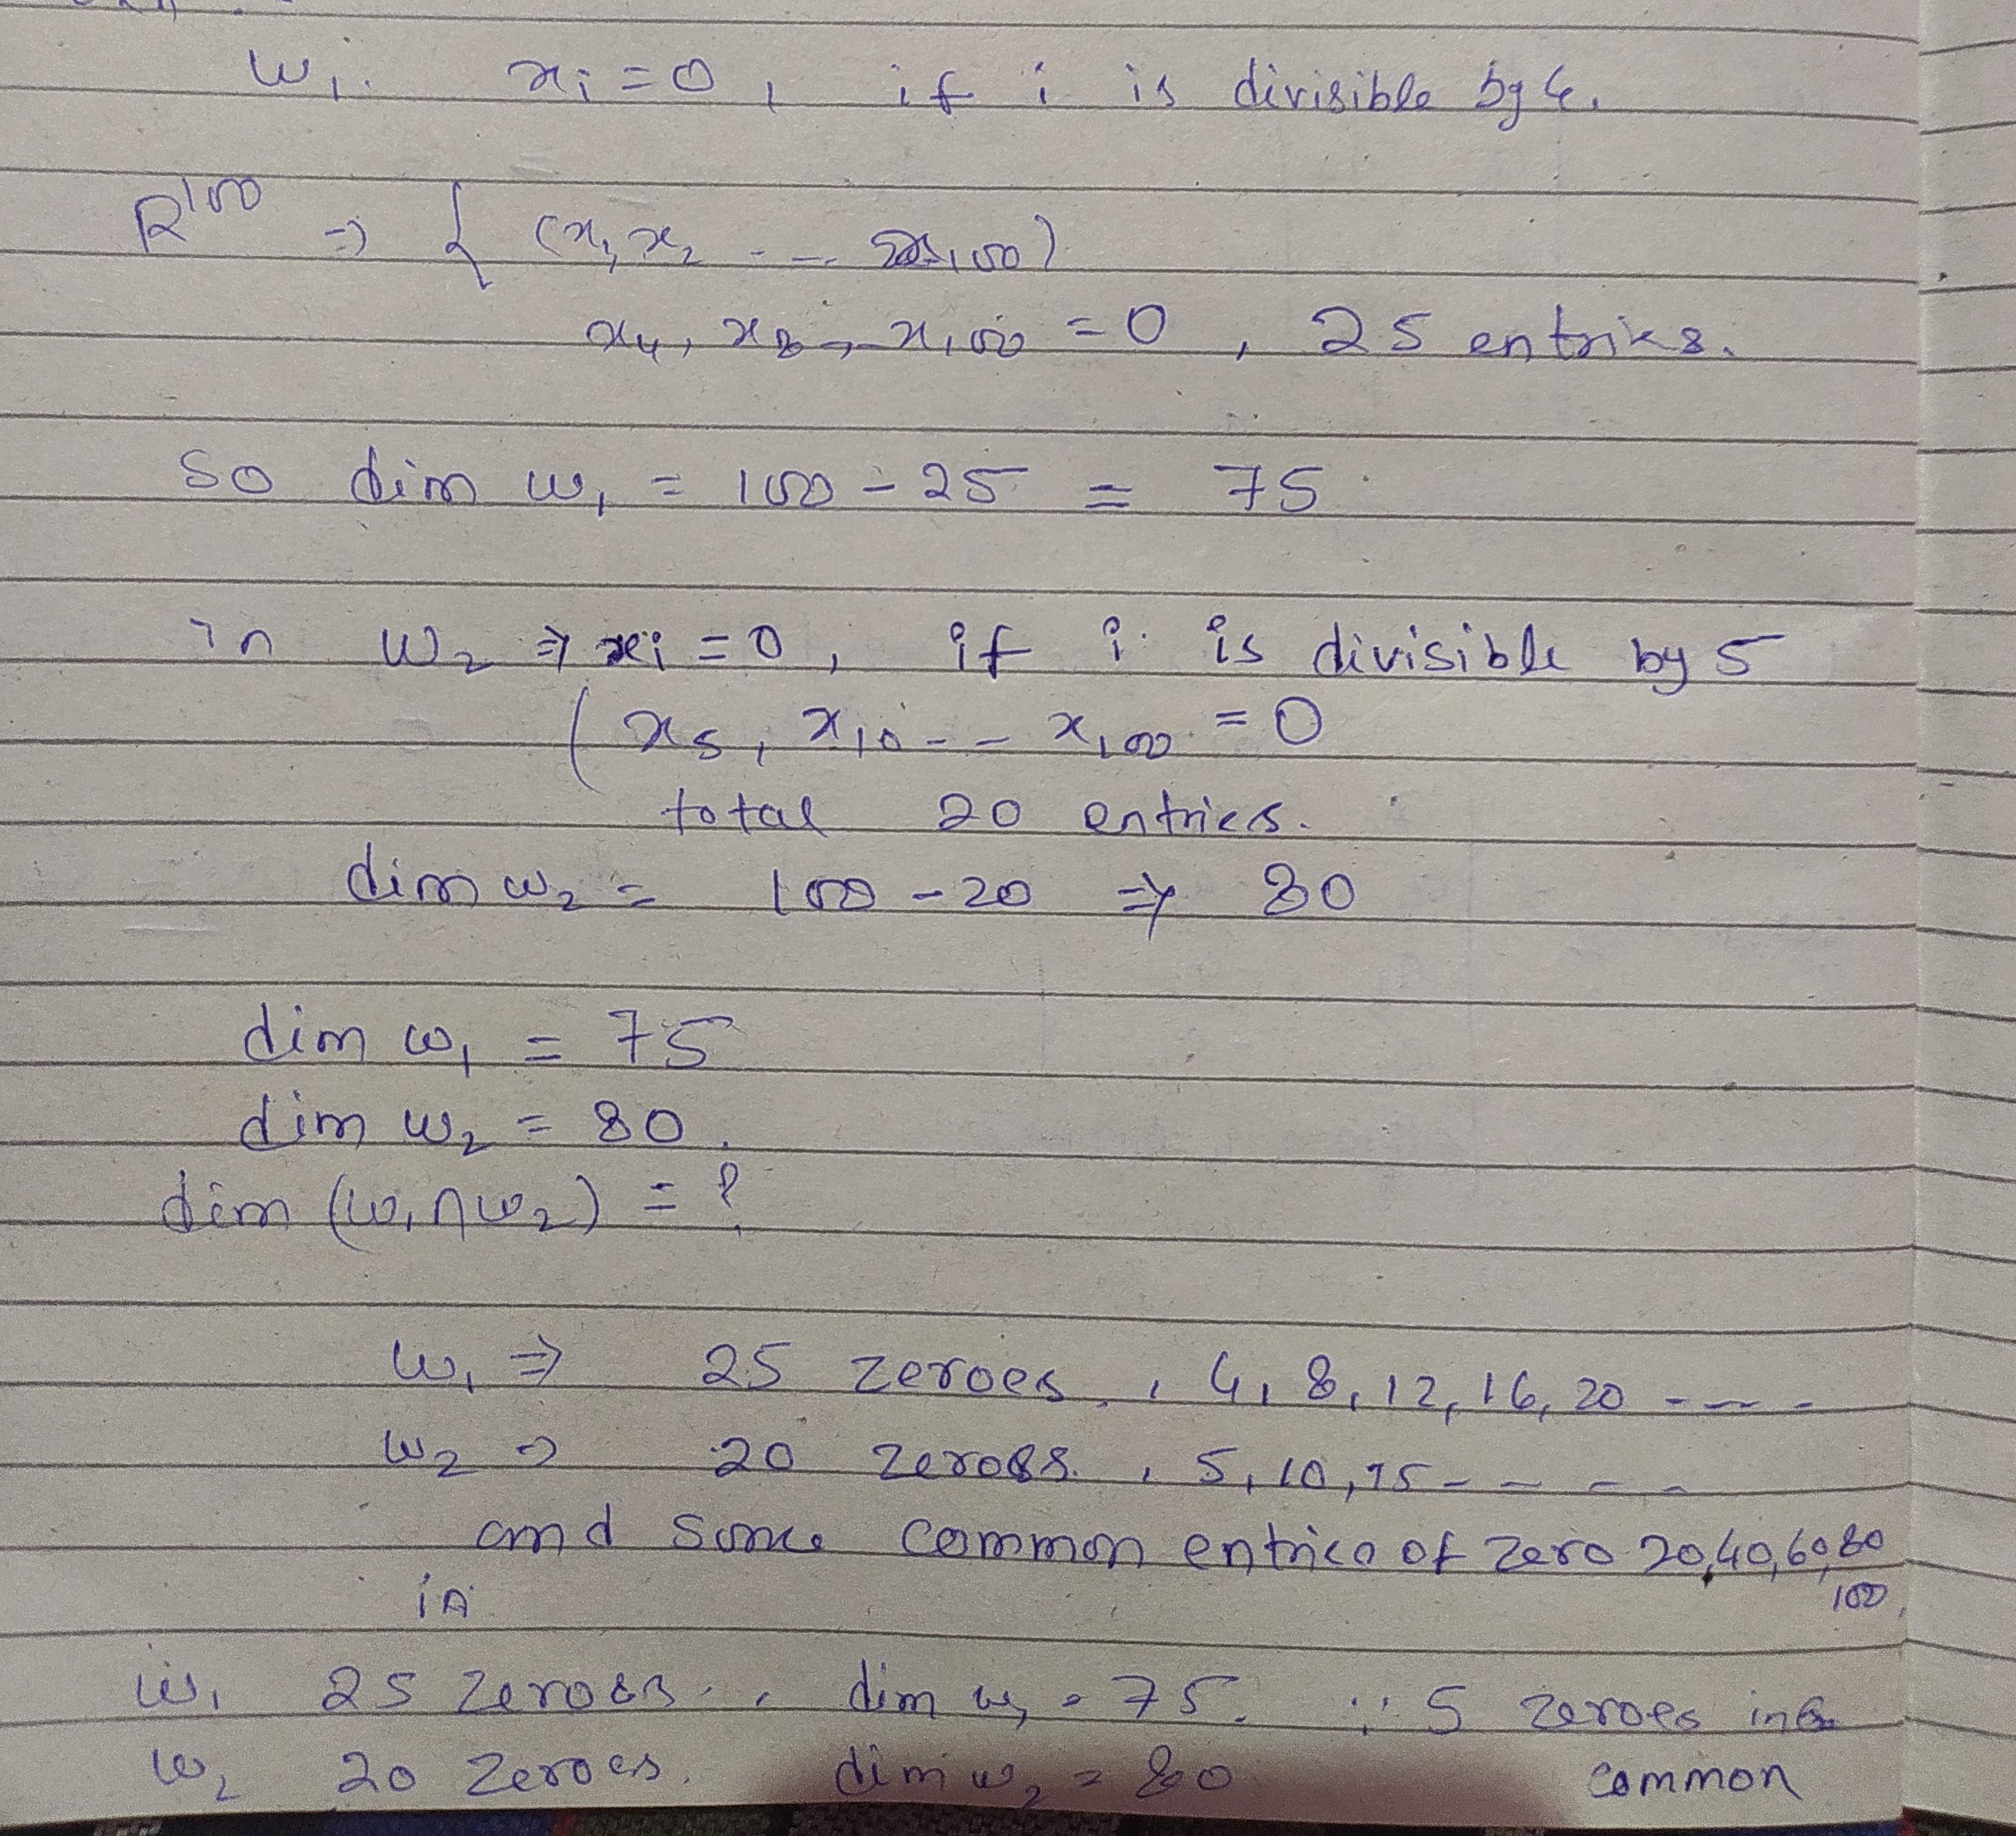 W₁. xi = 0, if i is divisible by 4.
R¹⁰⁰ ⇒ { (x₁, x₂ - - - x₁₀₀)
x₄, x₈, x₁₀₀ = 0, 25 entries.
So dim w₁ = 100 - 25 = 75
in W₂ ⇒ xi = 0, if i is divisible by 5
( x₅, x₁₀ - - x₁₀₀ = 0
total 20 entries.
dim w₂ = 100 - 20 ⇒ 80
dim w₁ = 75
dim w₂ = 80.
dim (w₁∩w₂) = ?
W₁ ⇒ 25 zeroes, 4, 8, 12, 16, 20 - - -
W₂ ⇒ 20 zeroes, 5, 10, 15 - - - -
and some common entries of zero 20, 40, 60, 80
100,
in
W₁ 25 zeroes, dim w₁ = 75. ∵ 5 zeroes in
W₂ 20 zeroes. dim w₂ = 80 common